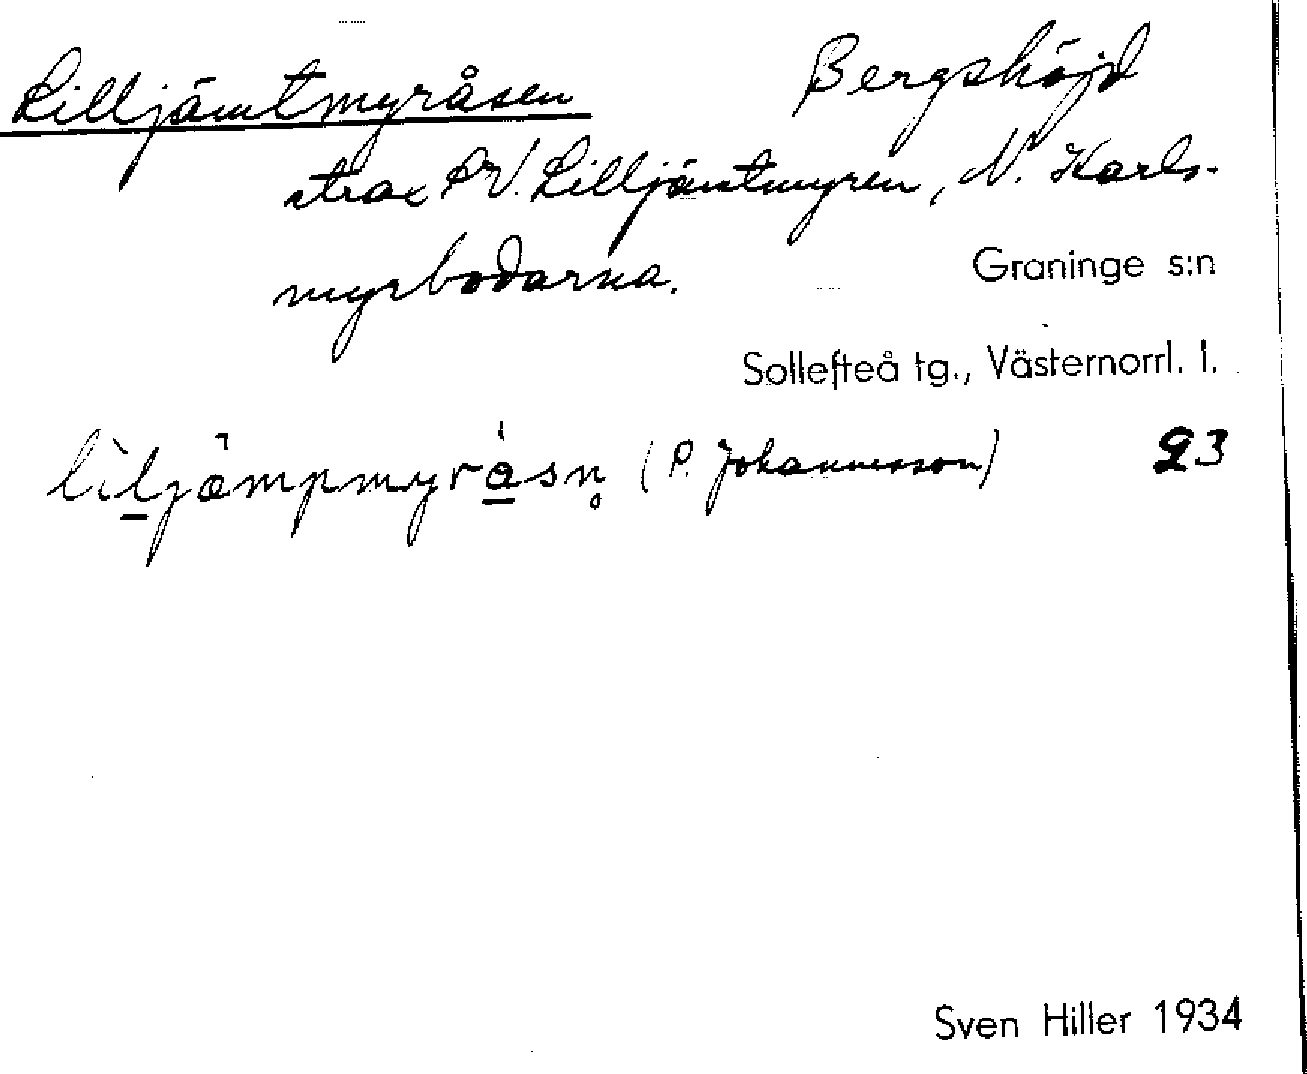 Lilljämtmyråsen Bergshöjd
strax SV. Lilljämtmyren, N. Karls-
myrbodarna.
Graninge s:n
Sollefteå tg., Västernorrl. l.
lìljä̀mpmyråsn̥ (P. Johannesson) 23
Sven Hiller 1934